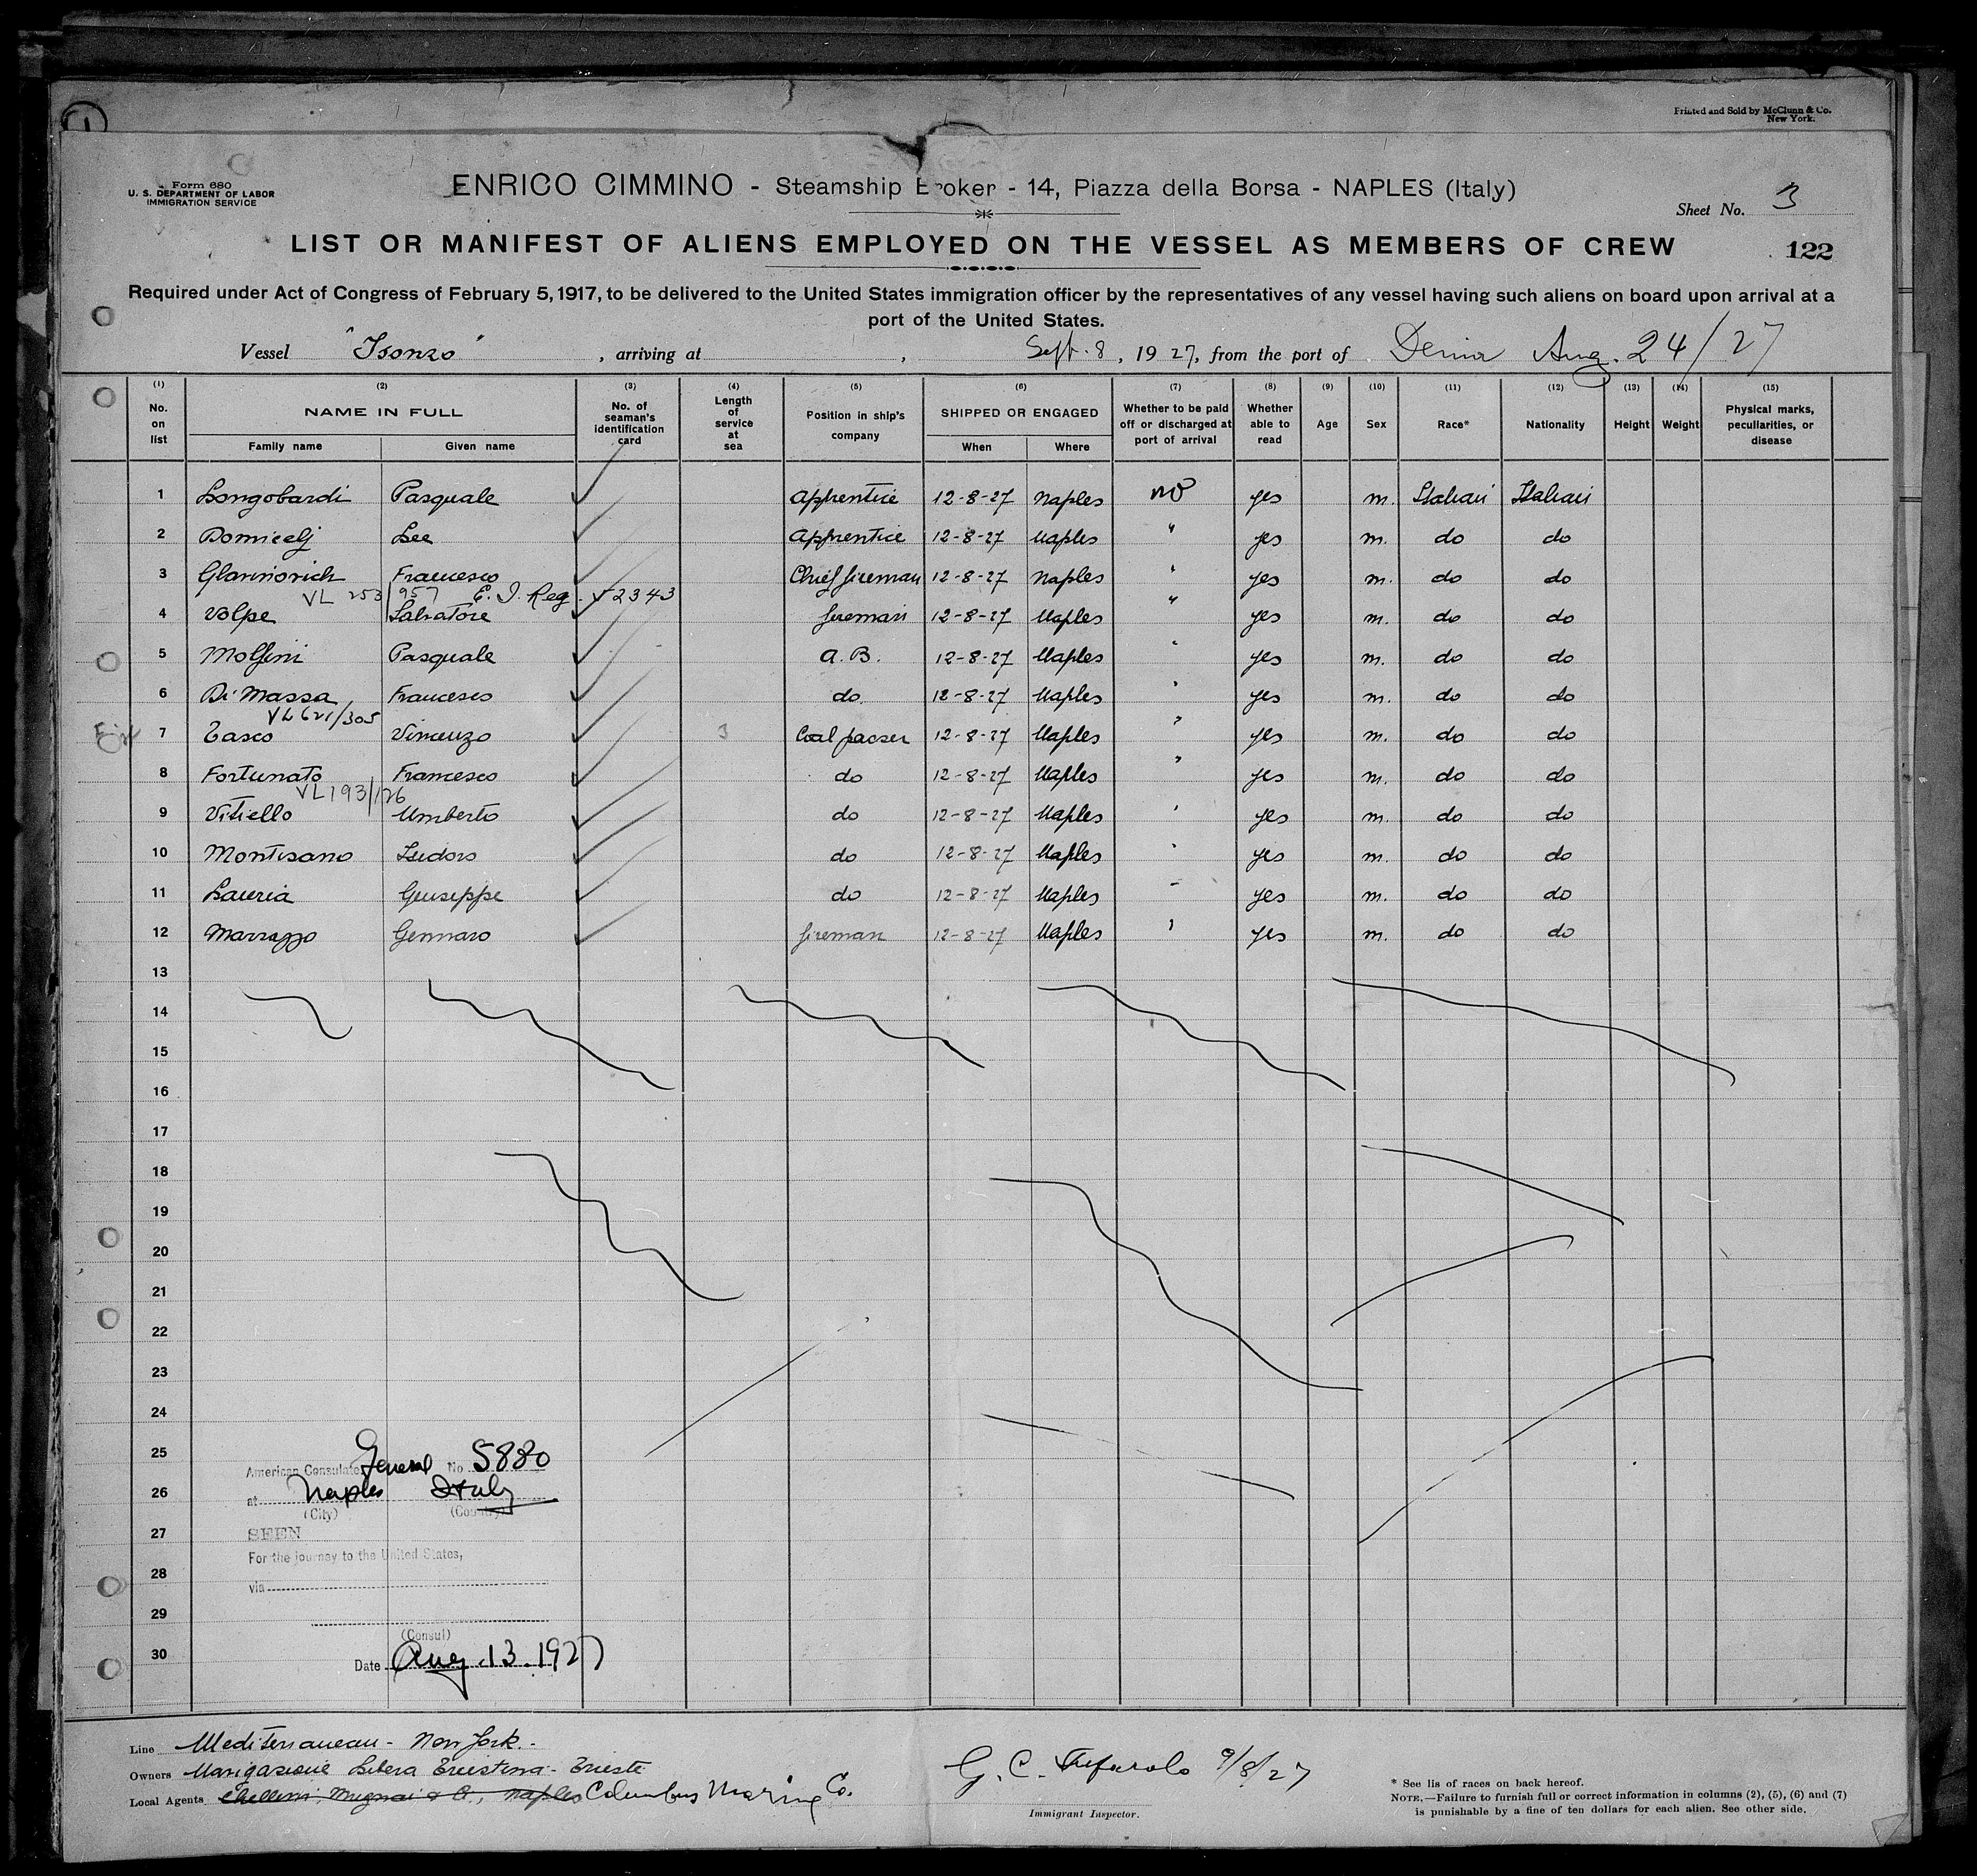 Printed and Sold by McClunn & Co.
New York.
1
Form 680
U. S. DEPARTMENT OF LABOR
IMMIGRATION SERVICE
ENRICO CIMMINO - Steamship Broker - 14, Piazza della Borsa - NAPLES (Italy)
Sheet No. 3
LIST OR MANIFEST OF ALIENS EMPLOYED ON THE VESSEL AS MEMBERS OF CREW
122
Required under Act of Congress of February 5, 1917, to be delivered to the United States immigration officer by the representatives of any vessel having such aliens on board upon arrival at a
port of the United States.
Vessel "Isonzo", arriving at , Sept. 8, 1927, from the port of Denia Aug. 24/27
(1) (2) (3) (4) (5) (6) (7) (8) (9) (10) (11) (12) (13) (14) (15)
No. on list NAME IN FULL Family name Given name No. of seaman's identification card Length of service at sea Position in ship's company SHIPPED OR ENGAGED When Where Whether to be paid off or discharged at port of arrival Whether able to read Age Sex Race* Nationality Height Weight Physical marks, peculiarities, or disease
1 Longobardi Pasquale Apprentice 12-8-27 Naples no yes m. Italian Italian
2 Domicelj Lee Apprentice 12-8-27 Naples " yes m. do do
3 Francesco Chief fireman 12-8-27 Naples " yes m. do do
VL 253/957 E. I. Reg. 2343
4 Volpe Salvatore fireman 12-8-27 Naples " yes m. do do
5 Molfini Pasquale A.B. 12-8-27 Naples " yes m. do do
6 Di Massa Francesco do 12-8-27 Naples " yes m. do do
VL 621/305
7 Tasco Vincenzo 3 Coal passer 12-8-27 Naples " yes m. do do
8 Fortunato Francesco do 12-8-27 Naples " yes m. do do
VL 193/126
9 Vitiello Umberto do 12-8-27 Naples " yes m. do do
10 Montisano Isidoro do 12-8-27 Naples " yes m. do do
11 Lauria Giuseppe do 12-8-27 Naples " yes m. do do
12 Marrazzo Gennaro fireman 12-8-27 Naples " yes m. do do
13
14
15
16
17
18
19
20
21
22
23
24
25
26
27
28
29
30
American Consulate General No 5880
at Naples Italy
(City) (Country)
SEEN
For the journey to the United States,
via
(Consul)
Date Aug. 13. 1927
Line Mediterranean - New York.-
Owners Navigazione Libera Triestina - Trieste
Local Agents Naples Columbus Marine Co.
G. C. 9/8/27
Immigrant Inspector.
* See lis of races on back hereof.
NOTE.—Failure to furnish full or correct information in columns (2), (5), (6) and (7)
is punishable by a fine of ten dollars for each alien. See other side.